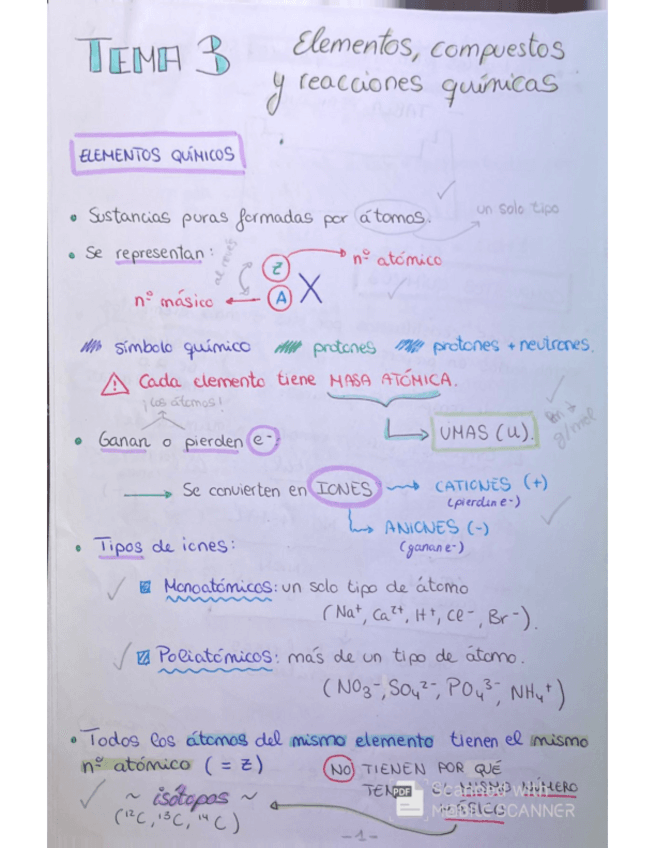 TEMA 3 Elementos, compuestos
y reacciones químicas
ELEMENTOS QUÍMICOS
• Sustancias puras formadas por átomos. un solo tipo
• Se representan: al revés Z → nº atómico
nº másico ← A X
símbolo químico protones protones + neutrones.
⚠ Cada elemento tiene MASA ATÓMICA.
¡los átomos!
• Ganan o pierden e- UMAS (u). g/mol
→ Se convierten en IONES → CATIONES (+)
(pierden e-)
→ ANIONES (-)
(ganan e-)
• Tipos de iones:
Monoatómicos: un solo tipo de átomo
(Na⁺, Ca²⁺, H⁺, Cl⁻, Br⁻).
Poliatómicos: más de un tipo de átomo.
(NO₃⁻, SO₄²⁻, PO₄³⁻, NH₄⁺)
• Todos los átomos del mismo elemento tienen el mismo
nº atómico (= Z) NO TIENEN POR QUÉ
~ isótopos ~ MISMO NÚMERO
(¹²C, ¹³C, ¹⁴C)
PDF Scanned with
MOBILE SCANNER
-1-